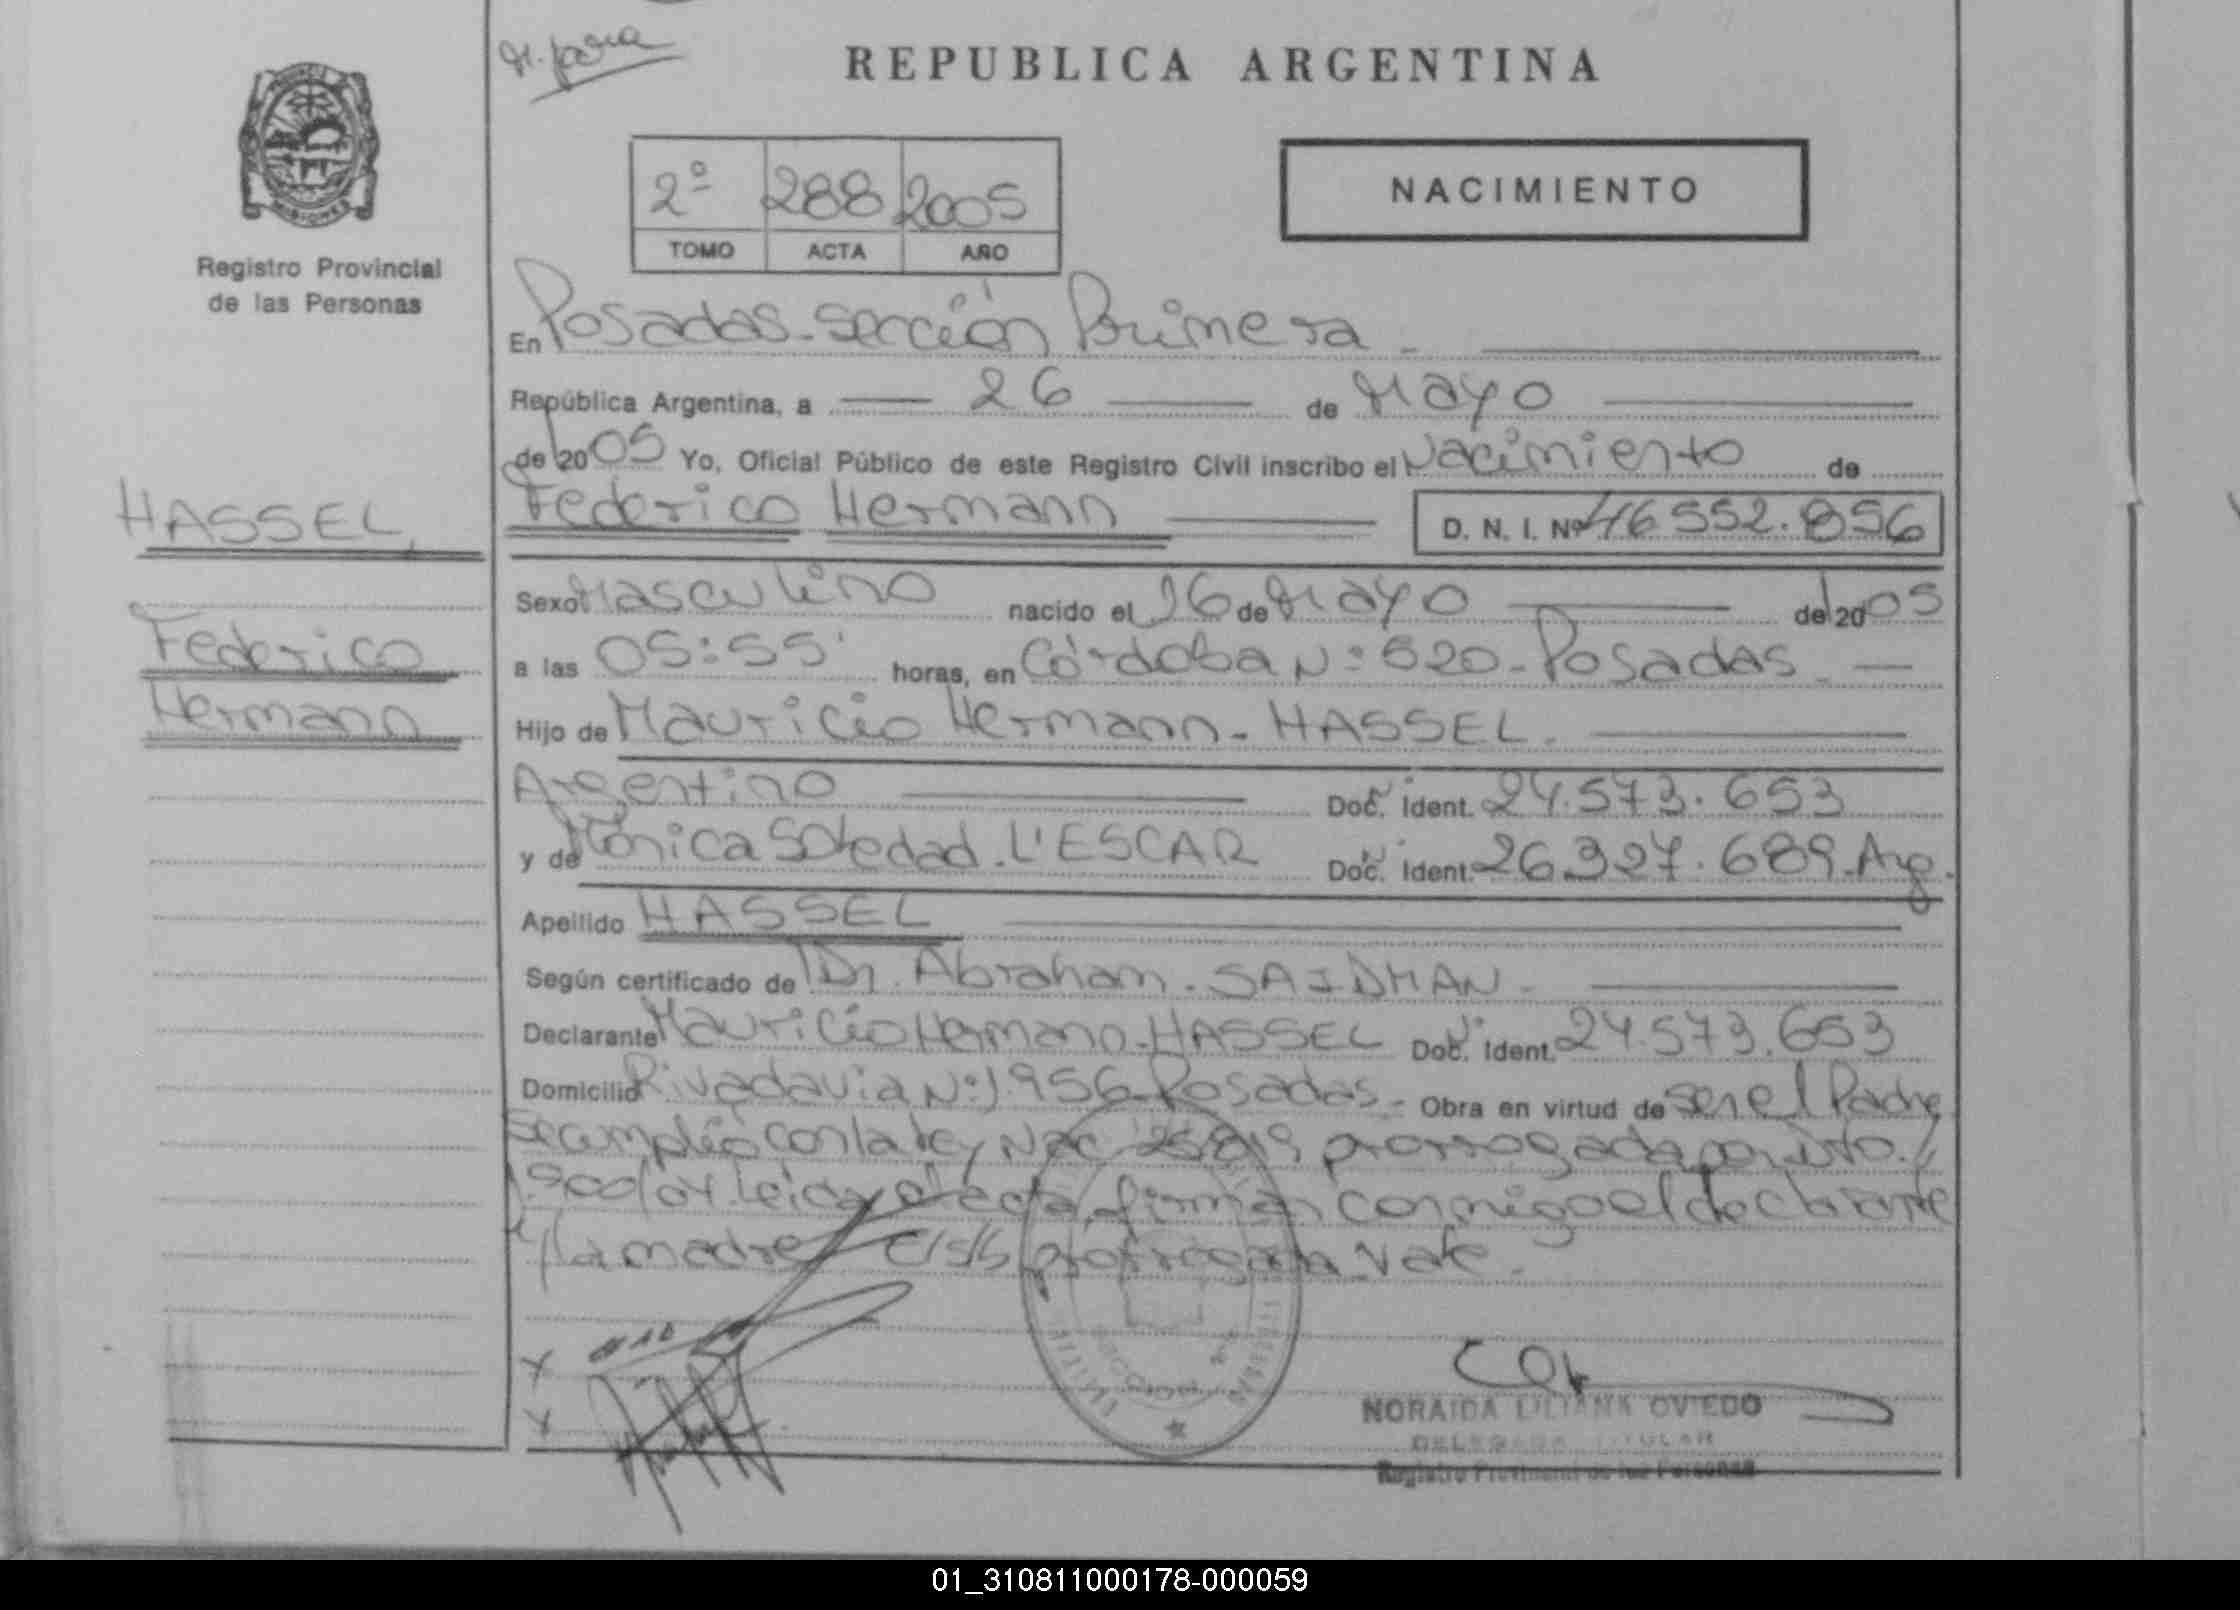 REPUBLICA ARGENTINA
MISIONES
Registro Provincial
de las Personas
2º 288 2005
TOMO ACTA AÑO
NACIMIENTO
En Posadas - sección Primera -
República Argentina, a 26 de Mayo
de 2005 Yo, Oficial Público de este Registro Civil inscribo el Nacimiento de
HASSEL,
Federico Hermann D. N. I. Nº 46552.856
Sexo Masculino nacido el 26 de Mayo de 2005
Federico
Hermann
a las 05:55' horas, en Córdoba Nº 520 - Posadas.
Hijo de Mauricio Hermann - HASSEL.
Argentino Doc. Ident. 24.573.653
y de Mónica Soledad. L'ESCAR Doc. Ident. 26.327.689. Arg.
Apellido HASSEL
Según certificado de Dr. Abraham. SAIDMAN.
Declarante Mauricio Hermann - HASSEL Doc. Ident. 24.573.653
Domicilio Rivadavia Nº 1.956 - Posadas - Obra en virtud de ser el Padre
Se cumplió con la ley Nac. 25.819 prorrogada por Dto.
1.900/04. Leida el acta, firman conmigo el declarante
y la madre. prorrogada. Vale.
NORAIDA LILIANA OVIEDO
DELEGADA TITULAR
Registro Provincial de las Personas
01_310811000178-000059